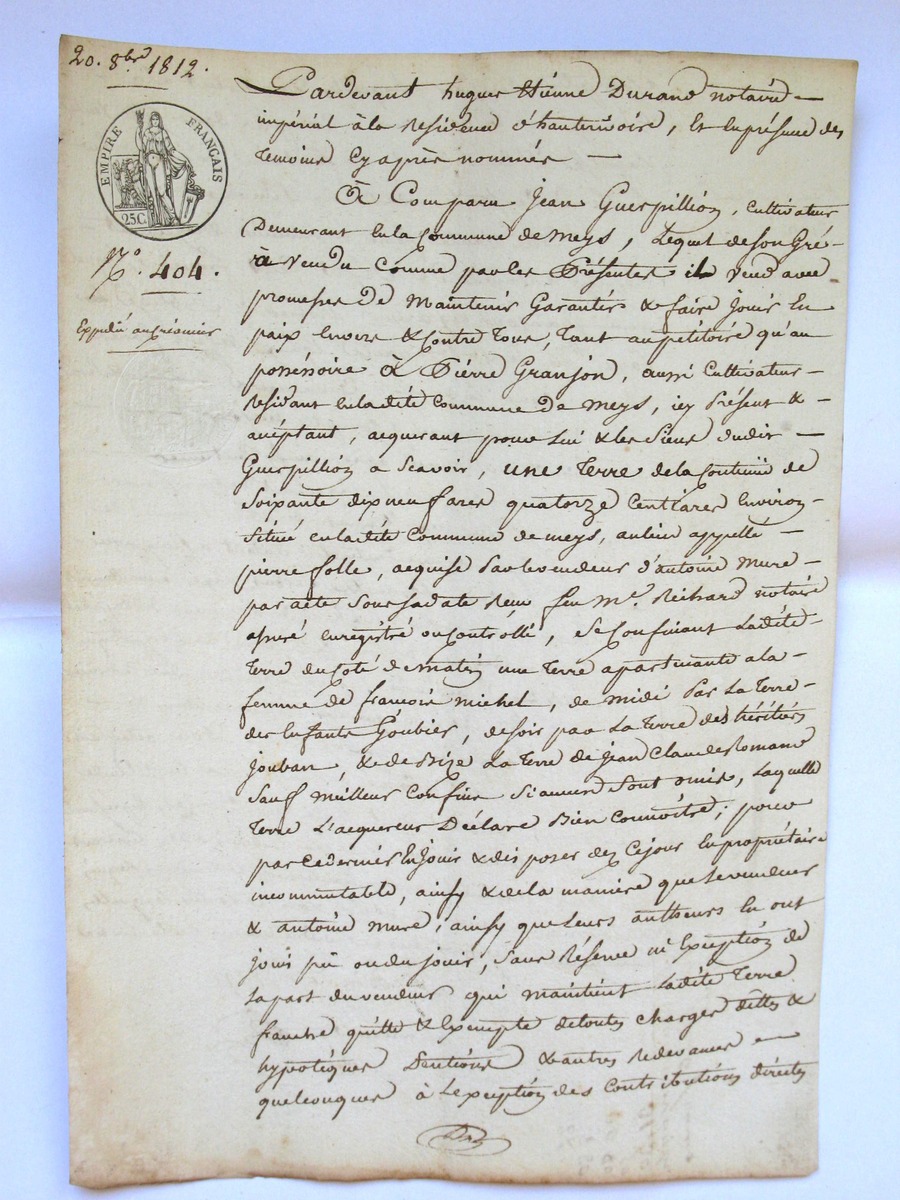 20. 8bre 1812.
EMPIRE FRANÇAIS
25C.
No. 404.
Expédié au
Pardevant hugues Etienne Durand notaire
impérial à la Residence d'hauterivoire, Et en présence des
temoins Cy après nommés
à Comparu Jean Guerpillion, Cultivateur
Demeurant En la Commune de Meys, Lequel de son Gré
à vendu Comme par les Présentes il vend avec
promesses de Maintenir Garantir & faire jouir En
paix Envers & Contre Tous, tant au pétitoire qu'au
possessoire à Pierre Granjon, aussi Cultivateur
residant En la dite Commune de Meys, icy Présent &
acceptant, acquerant pour Lui & les Siens dudit
Guerpillion a Scavoir, une Terre de la Contenüe de
Soixante dix neuf ares quatorze Centiares Environ
Située en la dite Commune de meys, au lieu appellé
pierre folle, acquise Par le vendeur d'antoine Mure
par acte Sous Sa date Recu feu Me. Reihard notaire
enregistré ou Controllé, Se Confinant La dite
terre du Coté de matin une terre apartenante a la
femme de francois michel, de midi Par La terre
des Enfants Goubier, de soir par La terre des hérétiers
Jouban, & de Bize La terre de Jean Claude Romand
Sauf Meilleurs Confins Si aucuns Sont omis, Laquelle
terre L'acquereur Déclare Bien Connoitre; pour
par Ce dernier En jouir & dis poser dez Ce jour En propriétaire
incommutable, ainsy & de la maniere que Le vendeur
& antoine mure, ainsy que Leurs autheurs En ont
joui pü ou du jouir, Sans Réserve ni Exception de
La part du vendeur qui maintient Ladite Terre
franche quitte & Exempte de toutes charges dettes &
hypotèques & autres redevances
quelconques à L'exception des Contributions directes